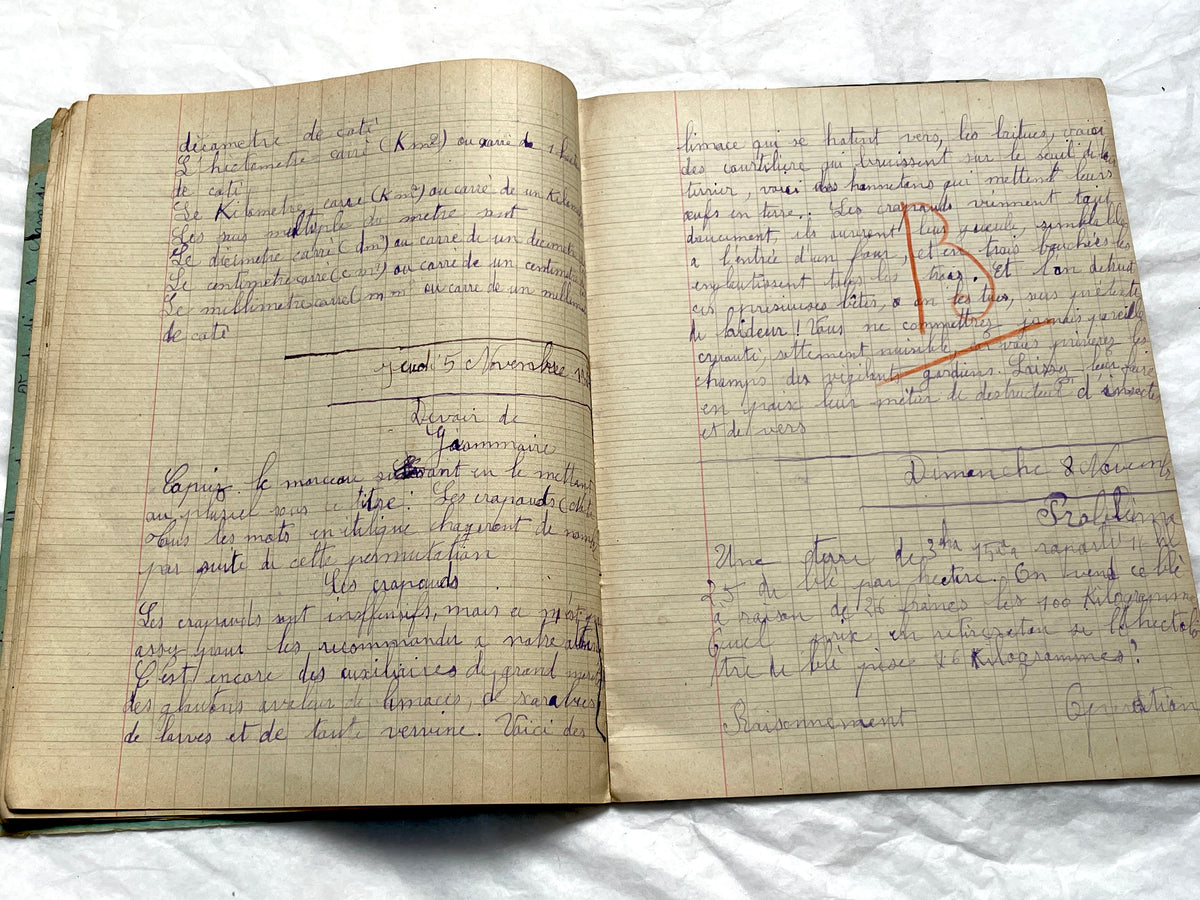 décametre de coté
L'hectometre carré (Km²) ou carré de 1 hect
de coté
Le Kilometre carré (Km²) ou carré de un Kilom
Les sous multiple du metre sont
Le décimetre carré (dm²) ou carre de un décimetre
Le centimetre carré (cm²) ou carre de un centimetre
Le millimetre carré mm² ou carre de un millim
de coté
Jeudi 5 Novembre
Devoir de
Grammaire
Copiez le morceau suivant en le mettant
au pluriel sous le titre : Les crapauds
tous les mots en italique changeront de nombre
par suite de cette permutation
Les crapauds
Les crapauds sont inoffensifs, mais ce n'est
assez pour les recommander a notre
C'est encore des auxiliaires de grand
des gloutons avaleur de limaces, de
de larves et de toute vermine. Voici des
limace qui se hatent vers, les voici
des courtiliere qui bruissent sur le seuil du
terrier, voici des hannetons qui mettent leurs
œufs en terre. Les crapauds viennent tout
doucement, ils ouvrent leur gueule, semblable
a l'entrée d'un four, et en trois bouchées les
engloutissent tous les trois. Et l'on detruit
ces bêtes, on les tues, sous prétexte
de laideur ! Vous ne commettrez jamais pareille
cruauté, sottement nuisible,
champs des vigilants gardiens. Laissez leur faire
en paix leur métier de destructeur d'insecte
et de vers
B
Dimanche 8 Novem
Problèma
Une terre de 3ha 15a
25 de blé par hectare. On vend ce blé
a raison de 26 francs les 100 Kilogramme
Quel prix en retirera ton si l'hectoli
tre de blé pèse 76 Kilogrammes?
Raisonnement Opération